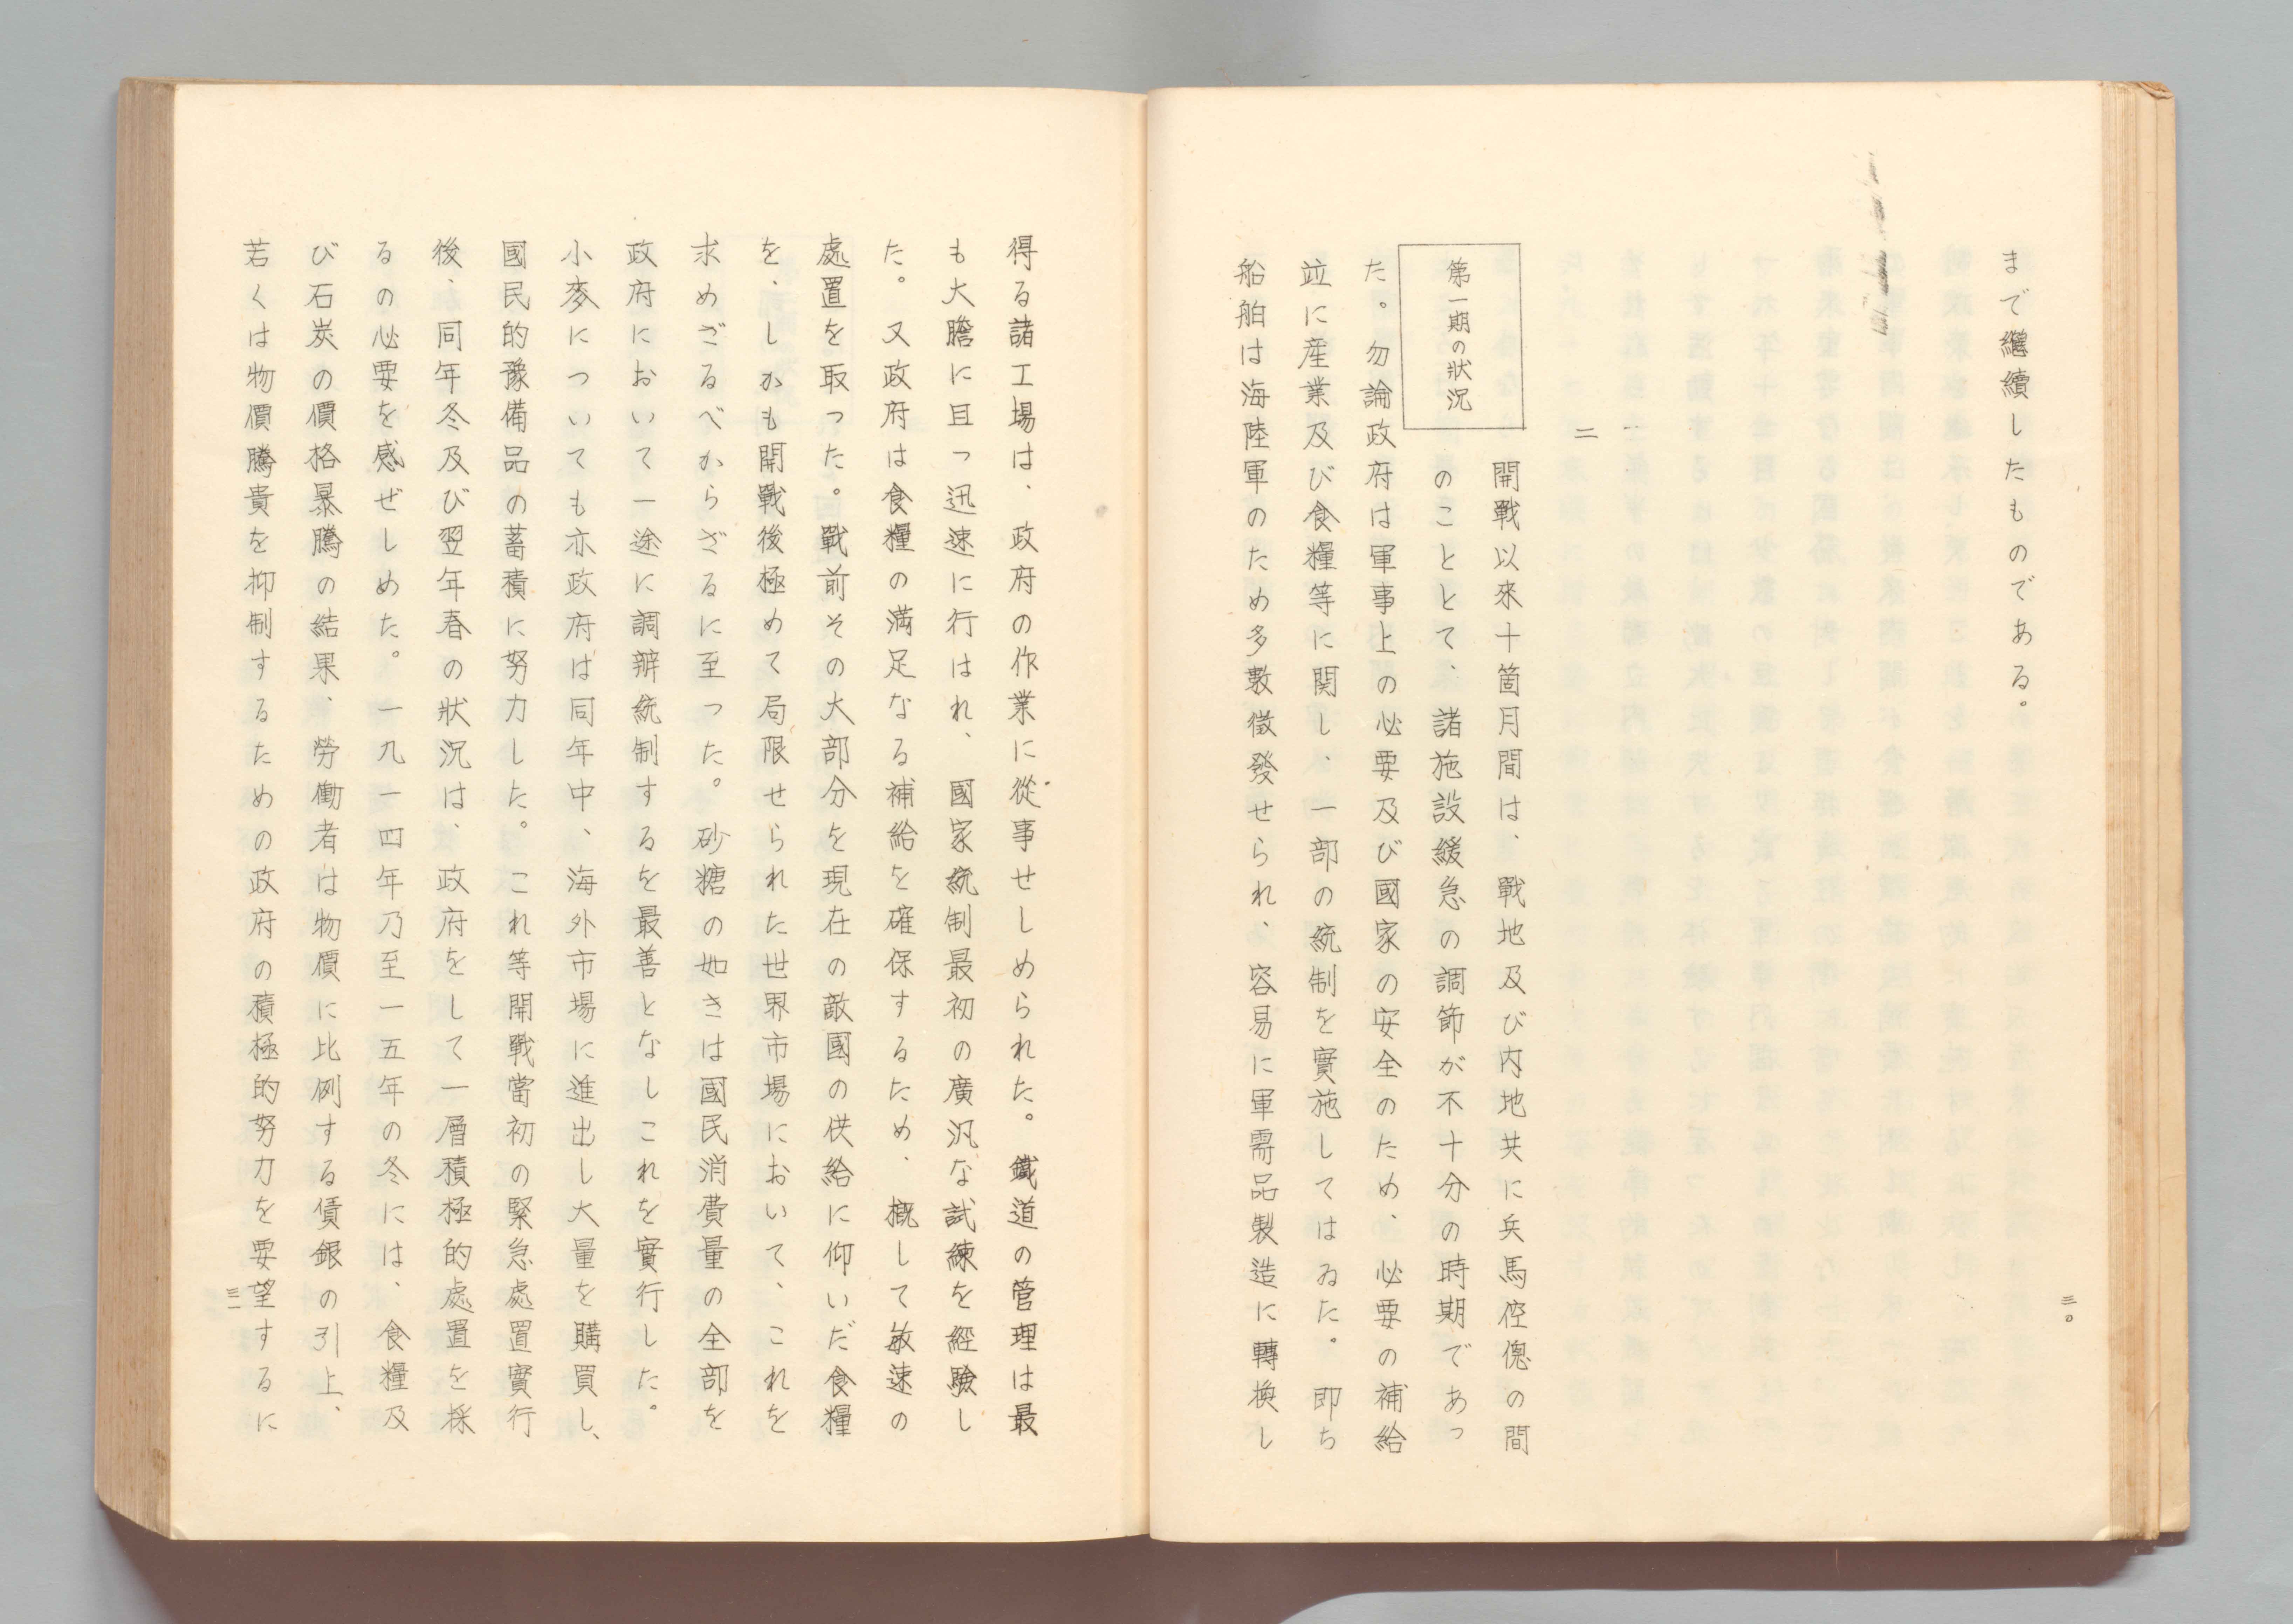 まで繼續したものである。
二
第一期の狀況
開戰以來十箇月間は、戰地及び内地共に兵馬倥偬の間
のこととて、諸施設緩急の調節が不十分の時期であつ
た。勿論政府は軍事上の必要及び國家の安全のため、必要の補給
竝に産業及び食糧等に関し、一部の統制を實施してはゐた。即ち
船舶は海陸軍のため多數徴發せられ、容易に軍需品製造に轉換し
三〇
得る諸工場は、政府の作業に從事せしめられた。鐵道の管理は最
も大膽に且つ迅速に行はれ、國家統制最初の廣汎な試練を經驗し
た。又政府は食糧の満足なる補給を確保するため、概して敏速の
處置を取つた。戰前その大部分を現在の敵國の供給に仰いだ食糧
を、しかも開戰後極めて局限せられた世界市場において、これを
求めざるべからざるに至つた。砂糖の如きは國民消費量の全部を
政府において一途に調辨統制するを最善となしこれを實行した。
小麥についても亦政府は同年中、海外市場に進出し大量を購買し、
國民的豫備品の蓄積に努力した。これ等開戰當初の緊急處置實行
後、同年冬及び翌年春の狀況は、政府をして一層積極的處置を採
るの必要を感ぜしめた。一九一四年乃至一五年の冬には、食糧及
び石炭の價格暴騰の結果、勞働者は物價に比例する賃銀の引上、
若くは物價騰貴を抑制するための政府の積極的努力を要望するに
三一